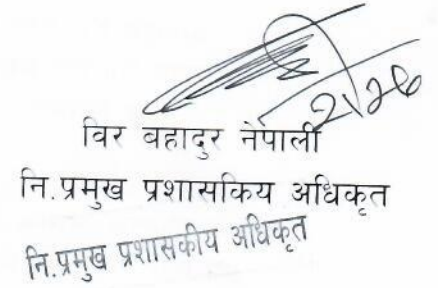 २।२७
विर बहादुर नेपाली
नि.प्रमुख प्रशासकिय अधिकृत
नि.प्रमुख प्रशासकीय अधिकृत